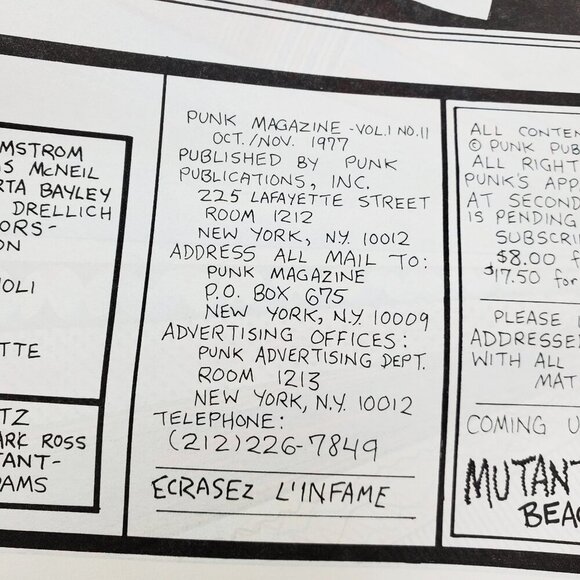 MSTROM
S MCNEIL
RTA BAYLEY
DRELLICH
ORS-
ON
OLI
ETTE
TZ
ARK ROSS
TANT-
DAMS
PUNK MAGAZINE -VOL.1 NO.11
OCT./NOV. 1977
PUBLISHED BY PUNK
PUBLICATIONS, INC.
225 LAFAYETTE STREET
ROOM 1212
NEW YORK, N.Y. 10012
ADDRESS ALL MAIL TO:
PUNK MAGAZINE
P.O. BOX 675
NEW YORK, N.Y. 10009
ADVERTISING OFFICES:
PUNK ADVERTISING DEPT.
ROOM 1213
NEW YORK, N.Y. 10012
TELEPHONE:
(212)226-7849
ECRASEZ L'INFAME
ALL CONTEN
© PUNK PUB
ALL RIGHT
PUNK'S APP
AT SECOND
IS PENDING
SUBSCRI
$8.00 f
$17.50 for
PLEASE
ADDRESSED
WITH ALL
MAT
COMING U
MUTANT
BEAC